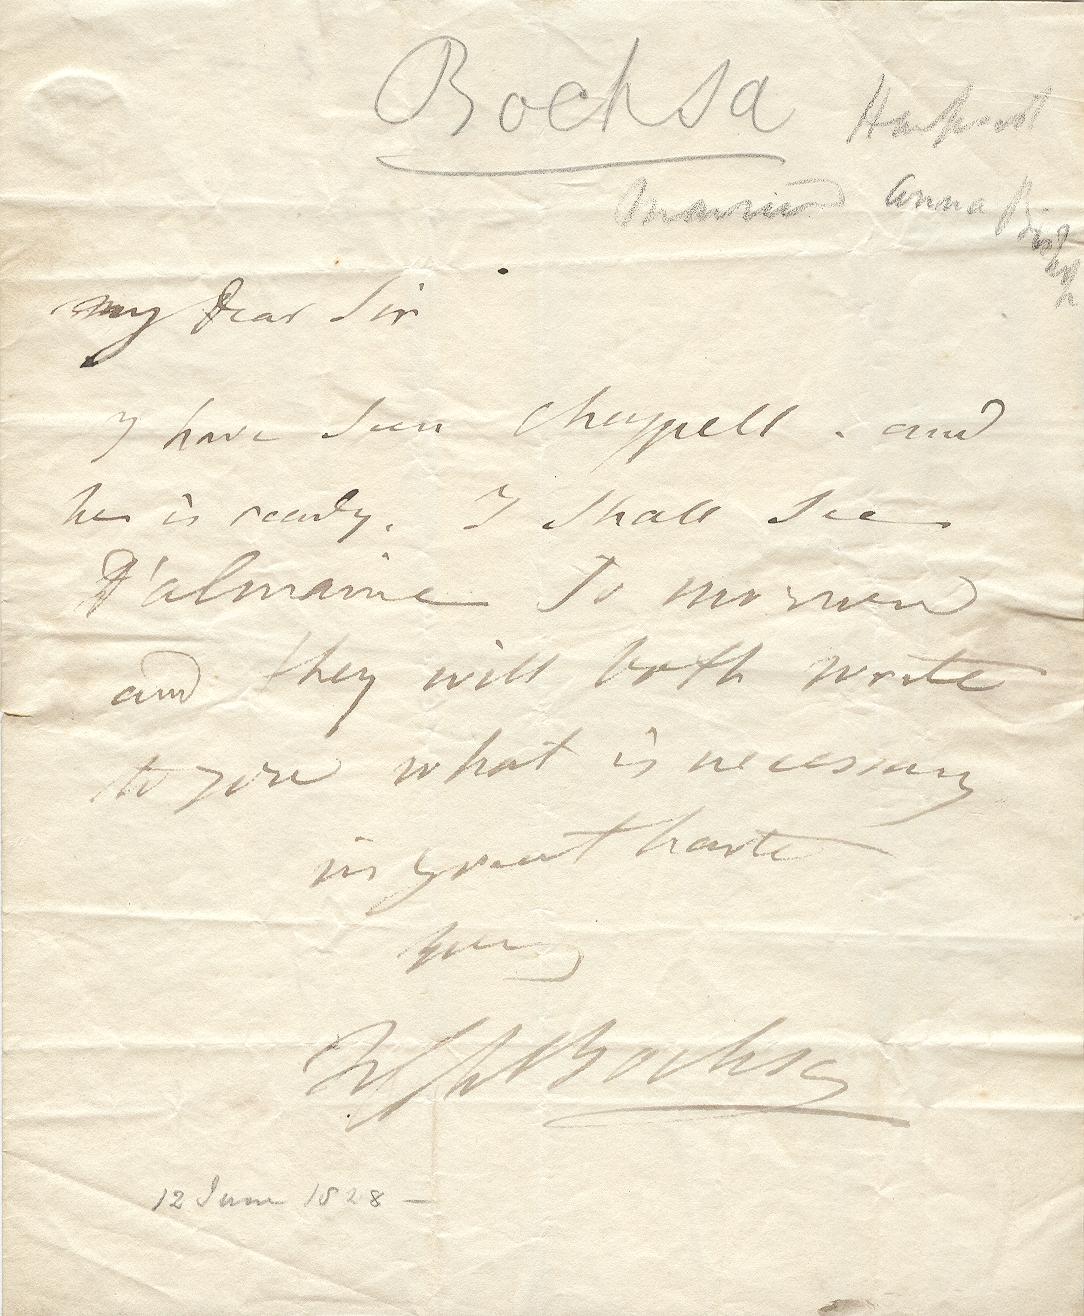 Bochsa Harpist
married Anna Bishop
my Dear Sir
I have seen Chappell . and
he is ready. I shall see
D'almaine To morrow
and they will both write
to you what is necessary
in great haste
yours
Bochsa
12 June 1828 —